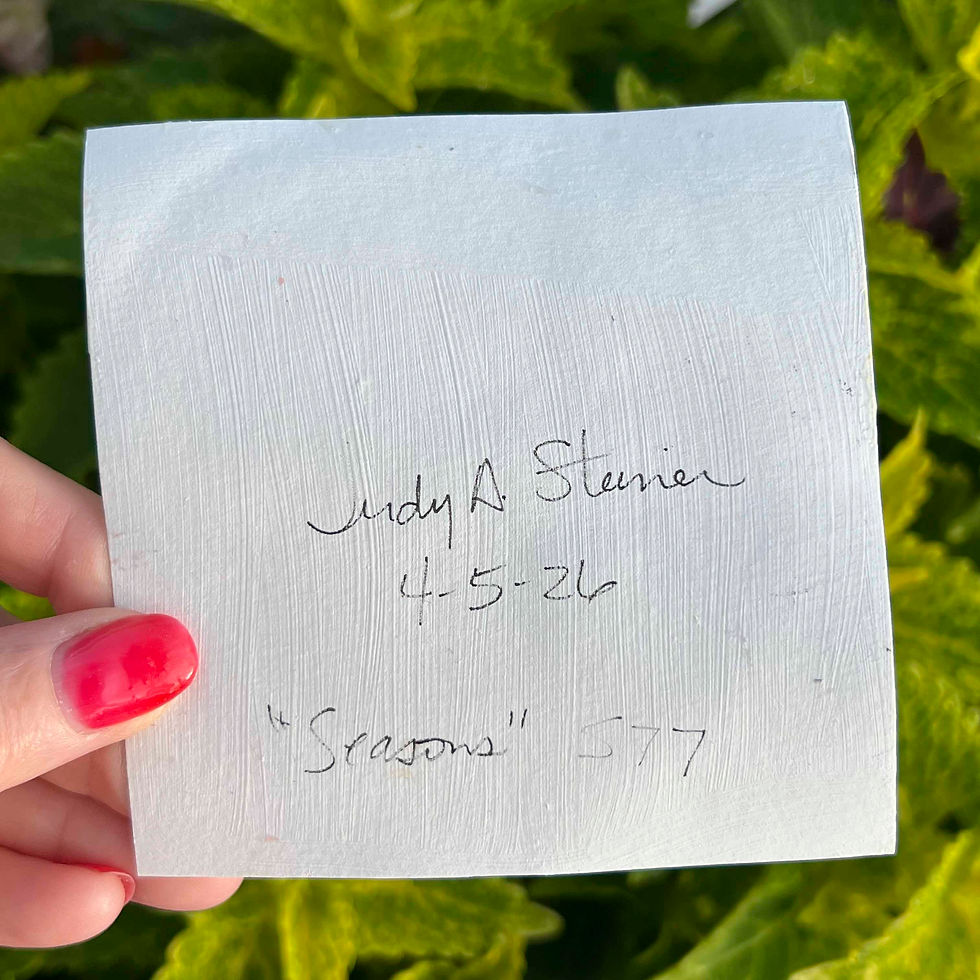 Judy A. Steiner
4-5-26
"Seasons" S77